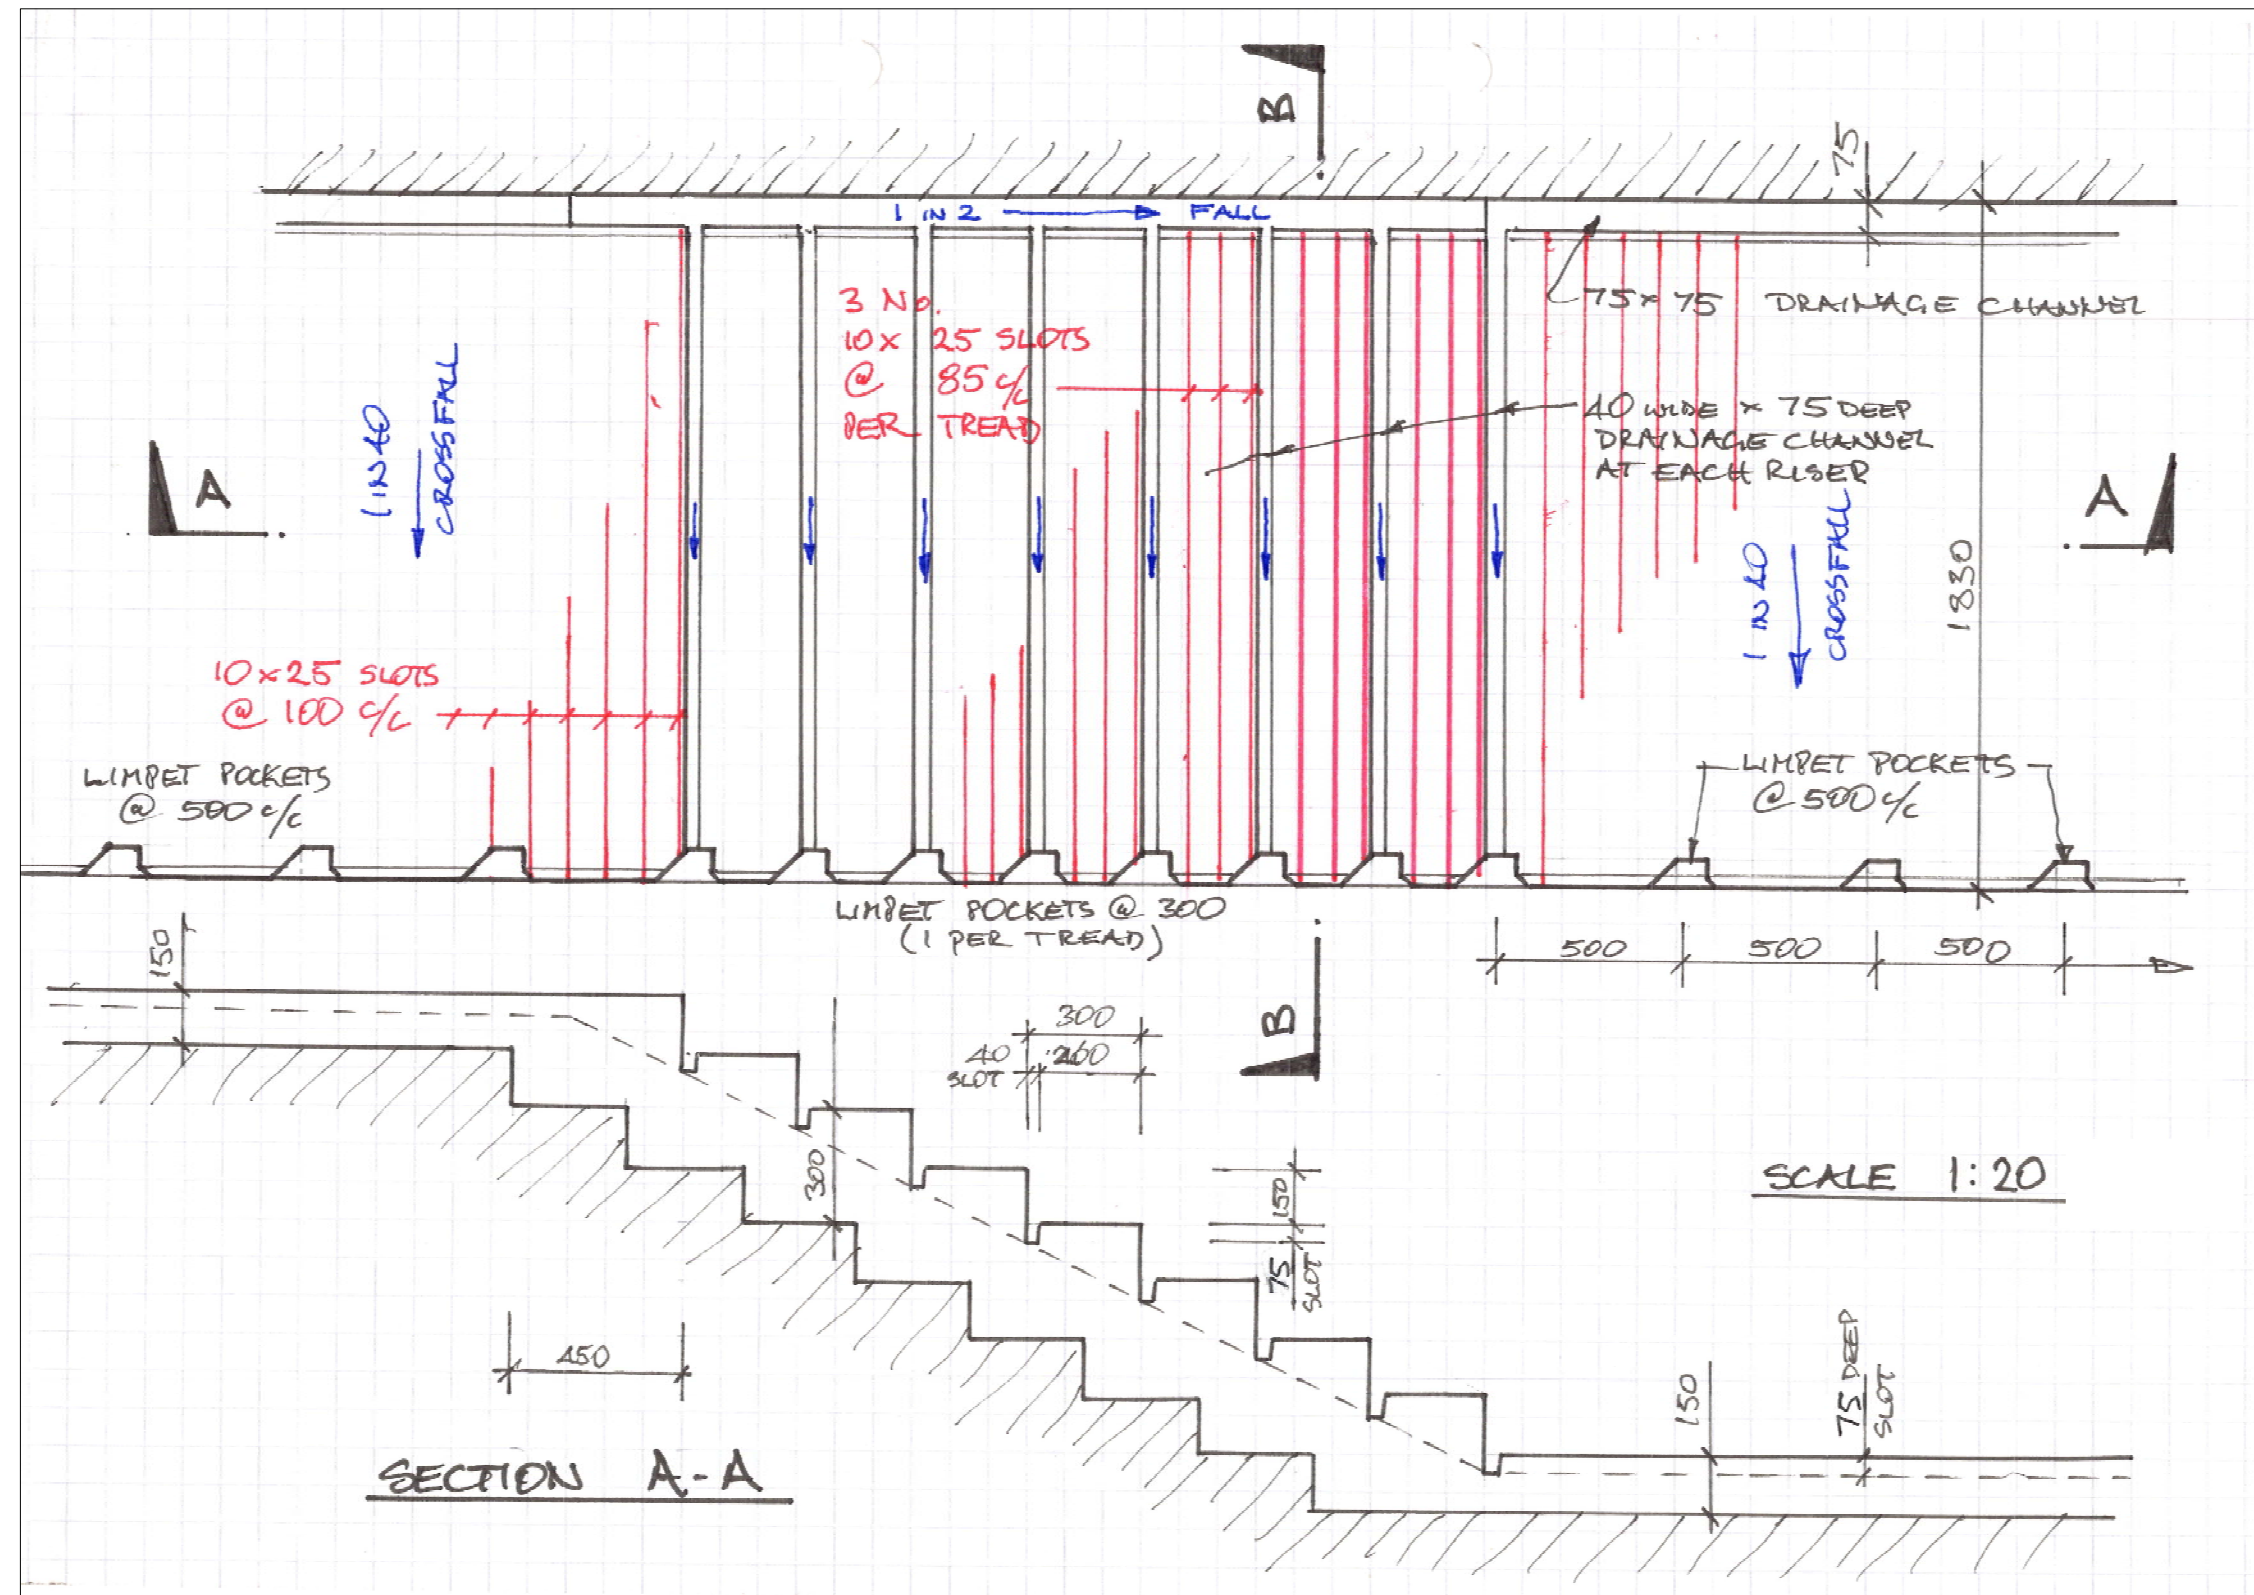 B
75
1 IN 2 FALL
75 x 75 DRAINAGE CHANNEL
3 No.
10 x 25 SLOTS
@ 85 c/c
PER TREAD
40 WIDE x 75 DEEP
DRAINAGE CHANNEL
AT EACH RISER
1 IN 40
CROSSFALL
A
A
1 IN 40
CROSSFALL
1830
10 x 25 SLOTS
@ 100 c/c
LIMPET POCKETS
@ 500 c/c
LIMPET POCKETS
@ 500 c/c
LIMPET POCKETS @ 300
(1 PER TREAD)
500 500 500
150
B
300
40 260
SLOT
300
150
75
SLOT
SCALE 1:20
450
150
75 DEEP
SLOT
SECTION A-A